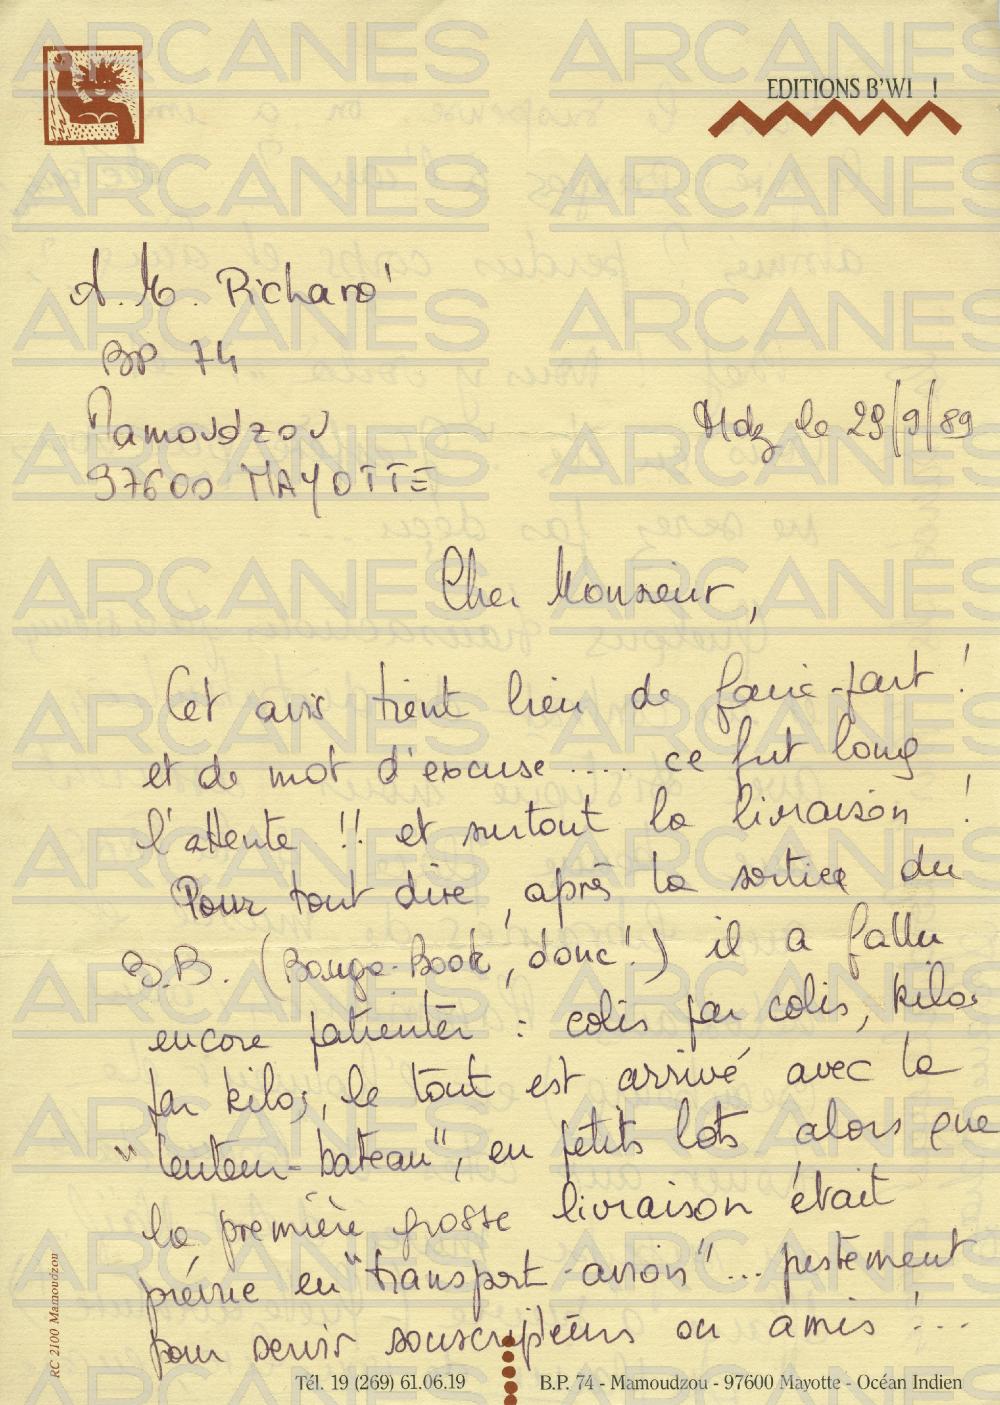 EDITIONS B'WI !
A. M. Richard
BP 74
Mamoudzou
97600 MAYOTTE
Mdz le 29/9/89
Cher Monsieur,
Cet avis tient lieu de faire-part !
et de mot d'excuse .... ce fut long
l'attente !! et surtout la livraison !
Pour tout dire, après la sortie du
B.B. (Banga-Book, donc !) il a fallu
encore patienter : colis par colis, kilos
par kilos, le tout est arrivé avec la
"lenteur-bateau", en petits lots alors que
la première grosse livraison était
prévue en "transport-avion"... justement
pour servir souscripteurs ou amis !...
RC 2100 Mamoudzou
Tél. 19 (269) 61.06.19 B.P. 74 - Mamoudzou - 97600 Mayotte - Océan Indien
ARCANES